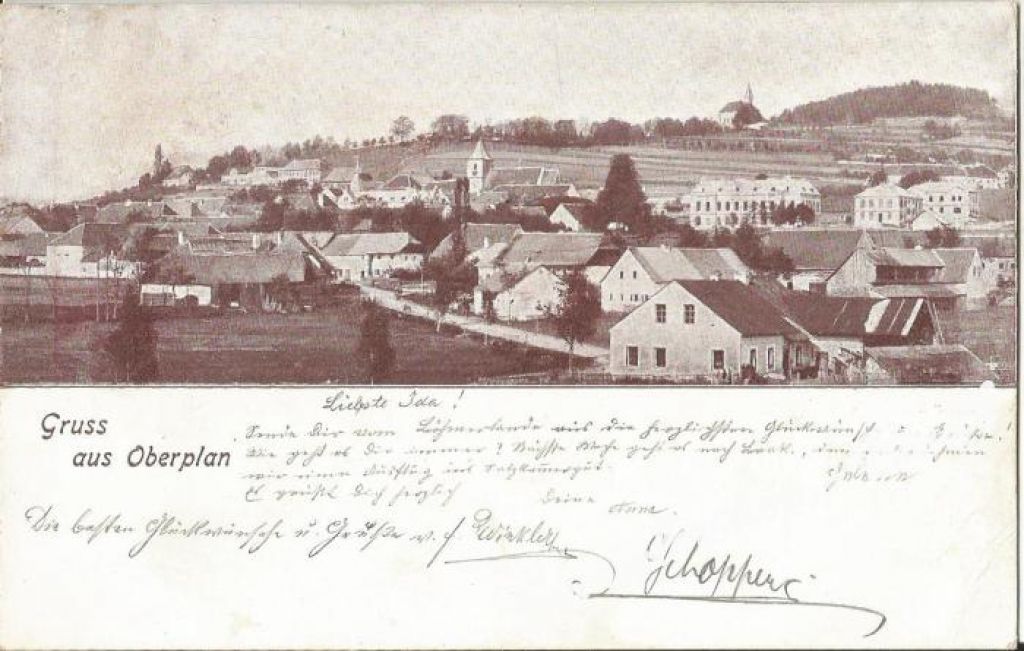 Liebste Ida!
Gruss
aus Oberplan
Sende Dir vom Böhmerlande aus die herzlichsten Glückwünsche
Wie geht es Dir immer? Nächste Woche geht es nach
wir einen Ausflug ins Salzkammergut.
Es grüßt Dich herzlich
Deine
Anna.
Die besten Glückwünsche u. Grüße v. f. Winkler
Schopper